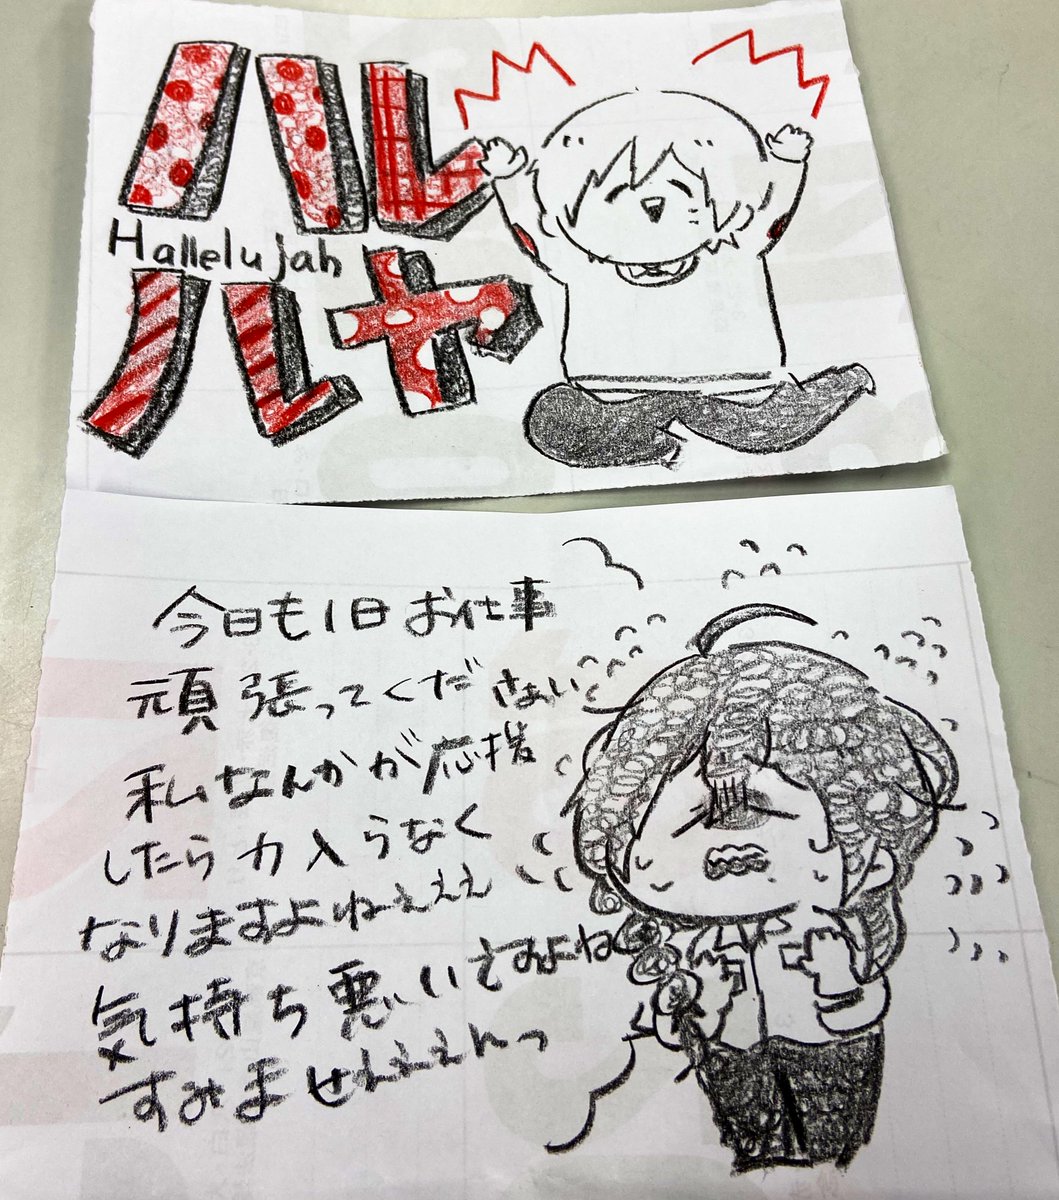 ハレ
Hallelujah
ルヤ
今日も1日お仕事
頑張ってくださぁい
私なんかが応援
したら力入らなく
なりますよねぇぇぇ
気持ち悪いですよね
すみませんんぇぇぇんっ